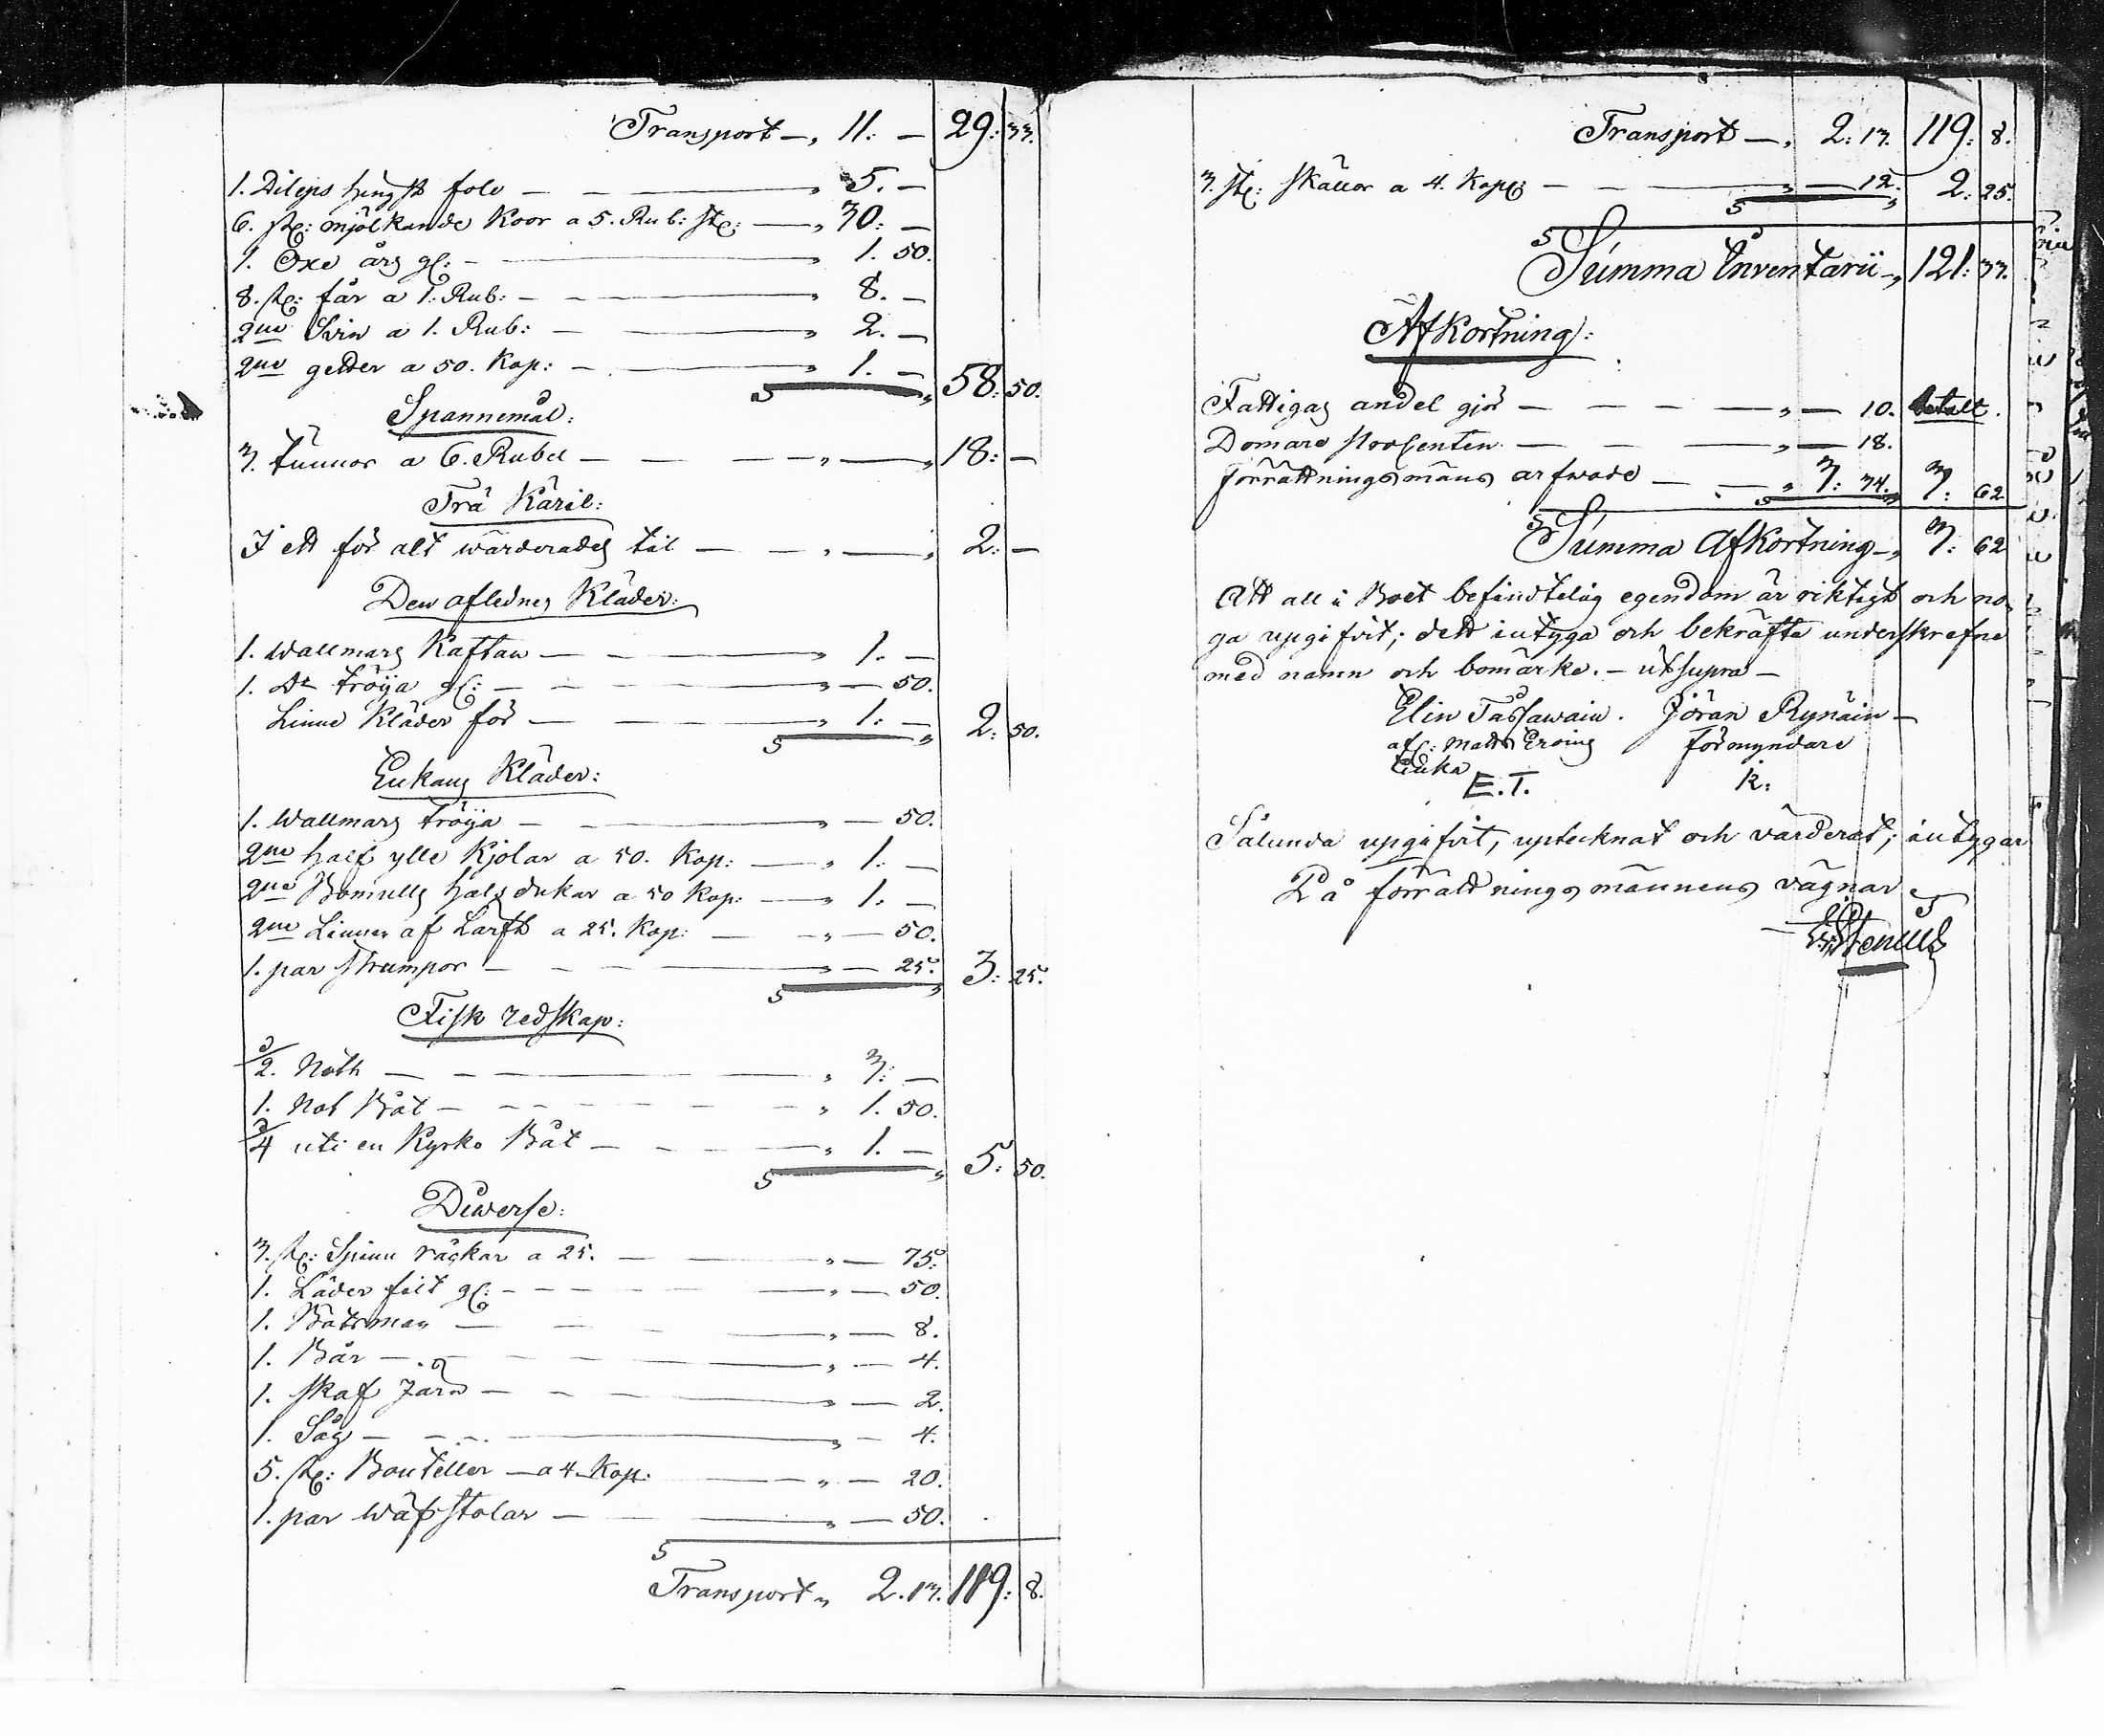 Transport —, 11: — 29: 33.
1. Dileps hingst fole — — — " 5. —
6. st: mjölkande Koor a 5. Rub: st: — " 30: —
1. Oxe årg gl: — — " 1. 50.
8. st: får a 1. Rub: — — " 8. —
2ne Svin a 1. Rub: — — " 2. —
2ne getter a 50. Kop: — — " 1. — 58: 50.
Spannemål:
3. tunnor a 6. Rubel — — — " — 18: —
Trä Käril:
I ett för alt wärderades til — — " — 2: —
Den aflednes Kläder:
1. Wallmars Kaftan — — — " 1. —
1. Dt tröija gl: — — — " — 50.
Linne Kläder för — — — " 1: — 2: 50.
Enkans Kläder:
1. Wallmars tröija — — — " — 50.
2ne half ylle Kjolar a 50. Kop: — " 1. —
2ne Bomulls halsdukar a 50 Kop: — " 1. —
2ne Linnen af Lärft a 25. Kop: — — " — 50.
1. par strumpor — — — " — 25. 3: 25.
Fisk redskap:
1/2. Noth — — — " 3: —
1. Not Båt — — — " 1. 50.
1/4 uti en Kyrko Båt — — — " 1. — 5: 50.
Diverse:
3. st: Spinn råckar a 25. — — " — 75:
1. Läder filt gl: — — — " — 50.
1. Båtsman — — — " — 8.
1. Bår — — — " — 4.
1. skaf Järn — — — " — 2.
1. Såg — — — " — 4.
5. st: Bouteller — a 4 Kop: — " — 20.
1. par Wäfstolar — — " — 50.
Transport " 2. 13. 119: 8.
Transport —, 2: 13. 119: 8.
3. st: skällor a 4. Kop: — — — " — 12. 2: 25.
Summa Inventarii —, 121: 33.
Afkortning:
Fattigas andel gjör — — — — " — 10. betalt.
Domare Procenten — — — " — 18.
Förrättningsmäns arfwode — — " 3: 34. 3: 62
Summa Afkortning —, 3: 62
Att all i Boet befindtelig egendom är riktigt och no-
ga upgifvit; dett intyga och bekräfta underskrefne
med namn och bomärke. — ut supra —
Elin Tassawain. Jöran Rynäin —
afl: Matts Eroins förmyndare
Enka
E.T. R:
Sålunda upgifvit, uptecknat och värderat; intygar
På förrättningsmännens vägnar